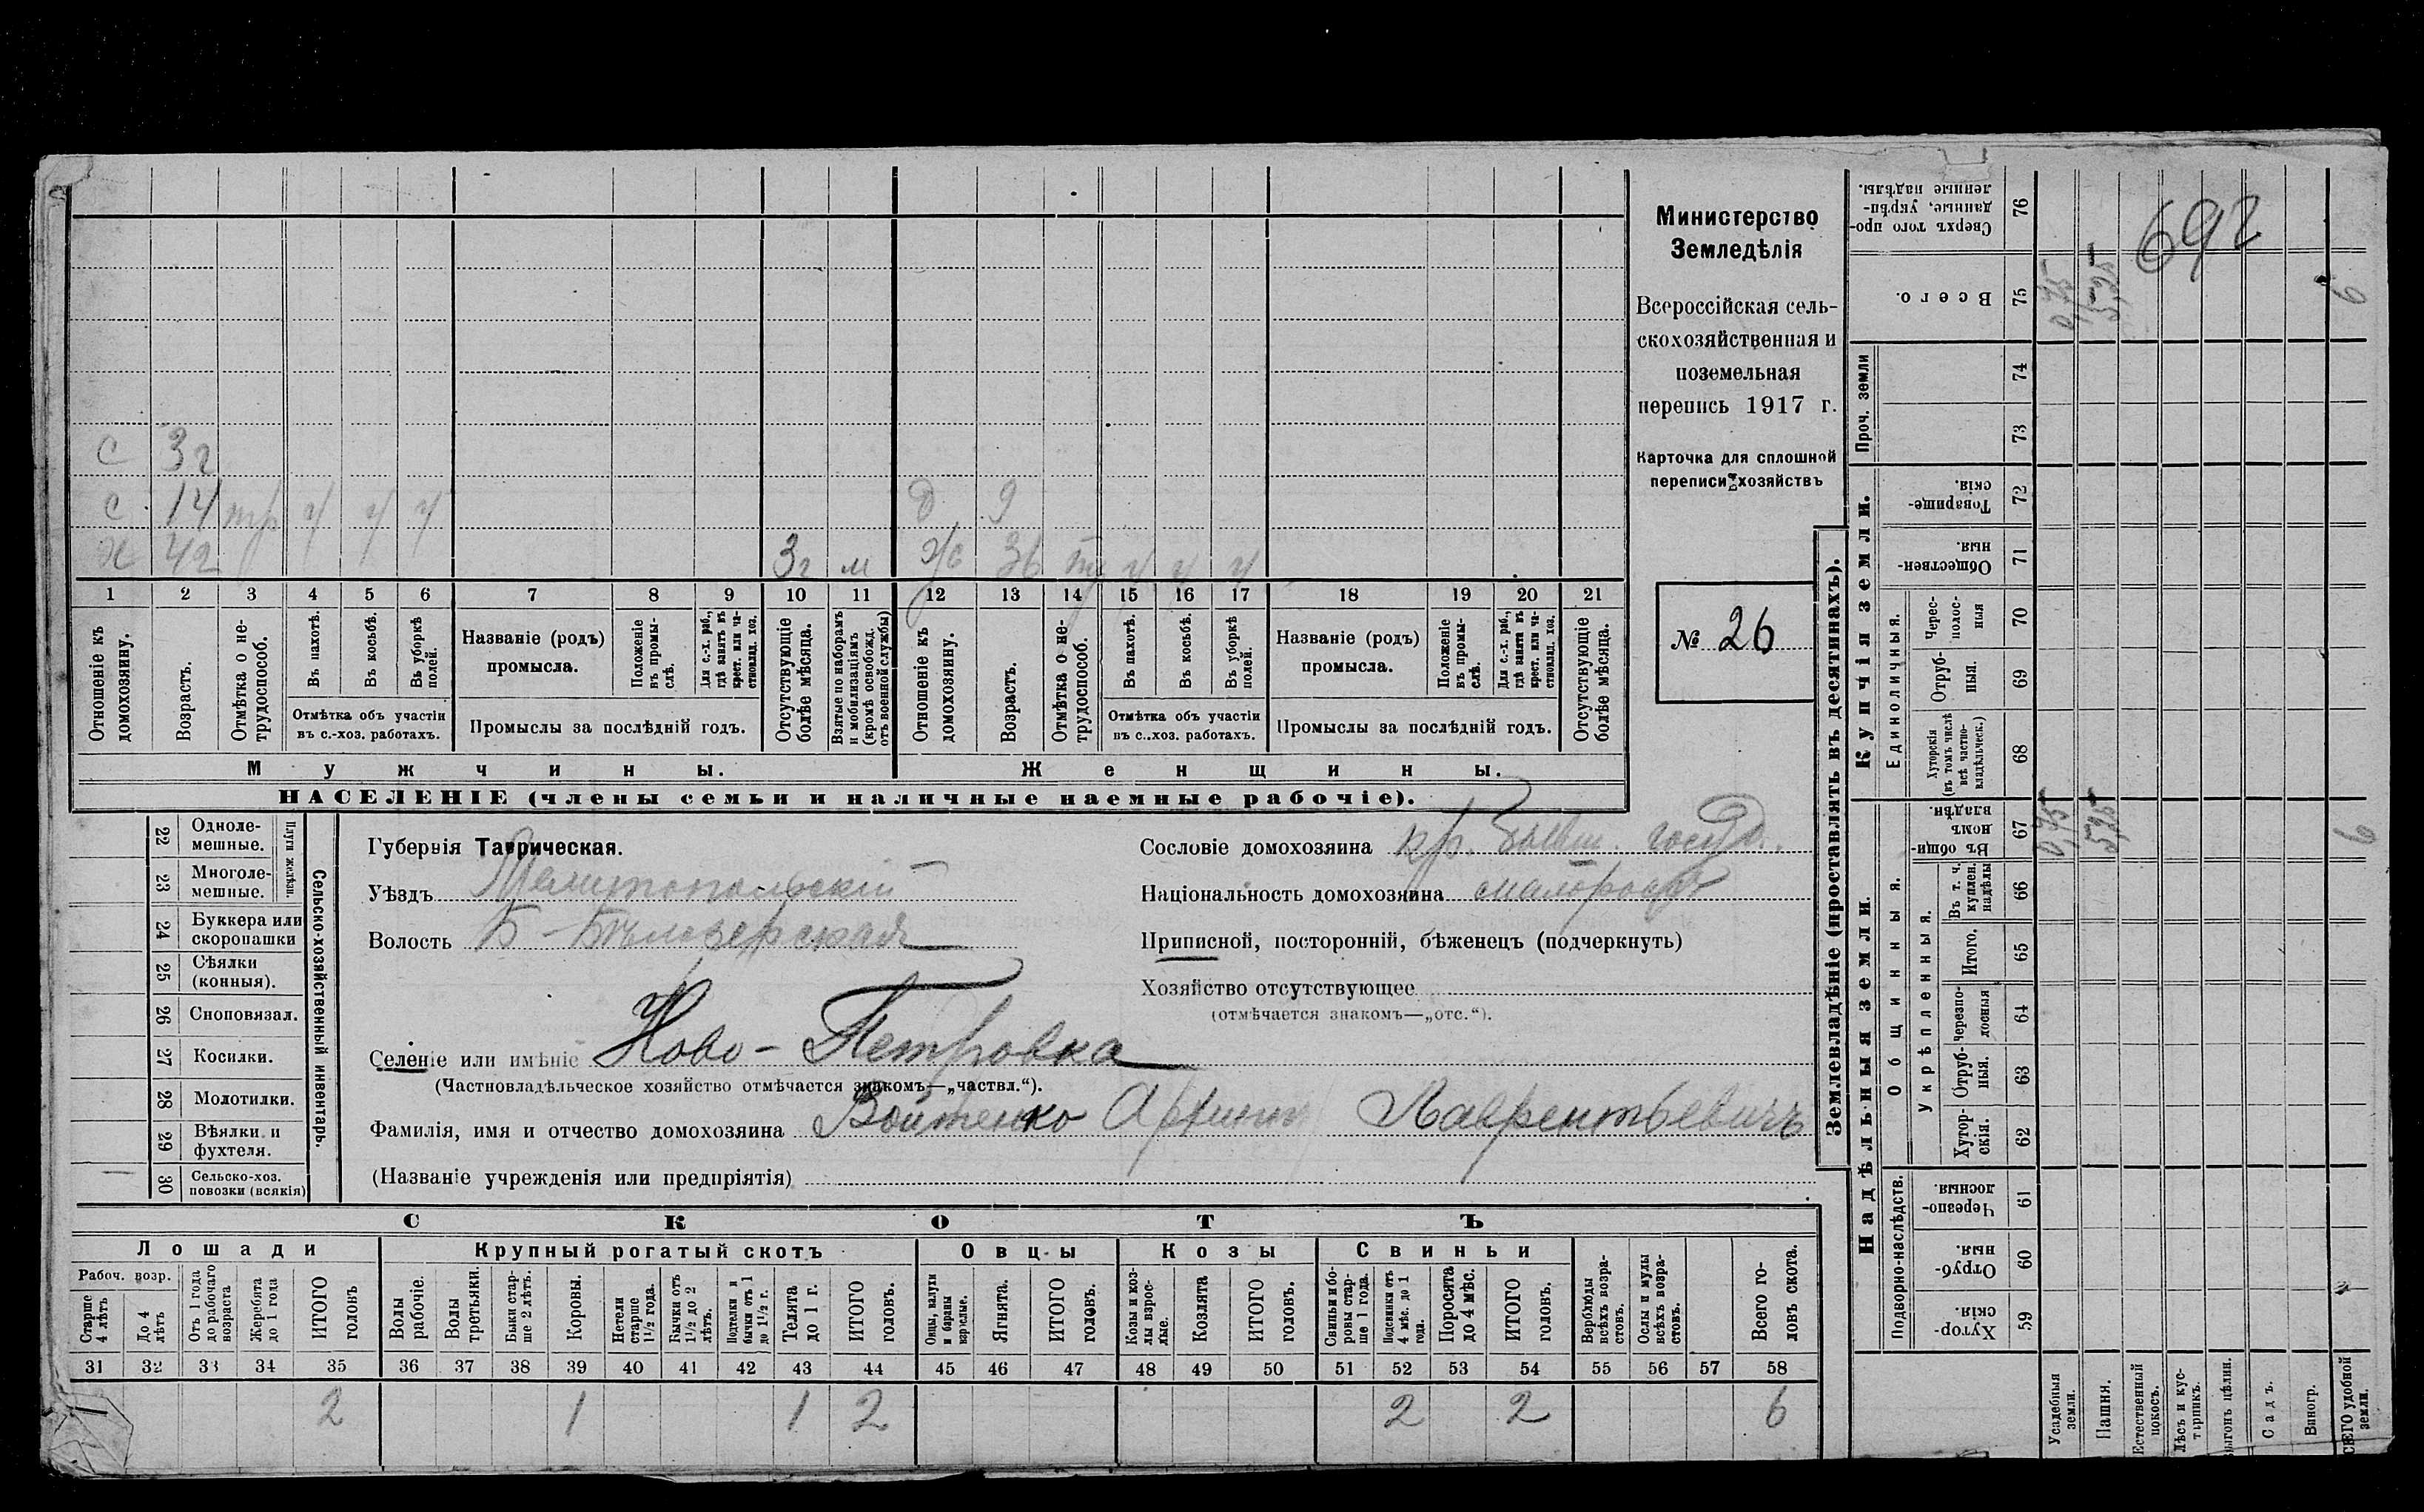 с 3г
с 14 тр ч ч ч д 9
х 42 3г м ж 36 ч ч ч
1 2 3 4 5 6 7 8 9 10 11 12 13 14 15 16 17 18 19 20 21
Отношеніе къ домохозяину.
Возрастъ.
Отмѣтка о не-трудоспособ.
Въ пахотѣ.
Въ косьбѣ.
Въ уборкѣ полей.
Отмѣтка объ участіи
въ с.-хоз. работахъ.
Названіе (родъ)
промысла.
Положеніе въ промы-слѣ.
Для с.-х. раб., гдѣ занятъ въ крест. или ча-стновлад. хоз.
Промыслы за послѣдній годъ.
Отсутствующіе болѣе мѣсяца.
Взятые по наборамъ и мобилизаціямъ (кромѣ освобожд. отъ военной службы)
Отношеніе къ домохозяину.
Возрастъ.
Отмѣтка о не-трудоспособ.
Въ пахотѣ.
Въ косьбѣ.
Въ уборкѣ полей.
Отмѣтка объ участіи
въ с.-хоз. работахъ.
Названіе (родъ)
промысла.
Положеніе въ промы-слѣ.
Для с.-х. раб., гдѣ занята въ крест. или ча-стновлад. хоз.
Промыслы за послѣдній годъ.
Отсутствующіе болѣе мѣсяца.
Мужчины.
Женщины.
НАСЕЛЕНІЕ (члены семьи и наличные наемные рабочіе).
Министерство
Земледѣлія
Всероссійская сель-
скохозяйственная и
поземельная
перепись 1917 г.
Карточка для сплошной
переписи хозяйствъ
№ 26
22 Одноле-мешные.
23 Многоле-мешные.
Плуги желѣзн.
24 Буккера или скоропашки
25 Сѣялки (конныя).
26 Сноповязал.
27 Косилки.
28 Молотилки.
29 Вѣялки и фухтеля.
30 Сельско-хоз. повозки (всякія)
Сельско-хозяйственный инвентарь.
Губернія Таврическая.
Уѣздъ Мелитопольскій
Волость Б-Бѣлозерская
Селеніе или имѣніе Ново-Петровка
(Частновладѣльческое хозяйство отмѣчается знакомъ—„частвл.“).
Фамилія, имя и отчество домохозяина Войтенко Архипъ Лаврентьевичъ
(Названіе учрежденія или предпріятія)
Сословіе домохозяина кр. бывш. госуд.
Національность домохозяина малороссъ
Приписной, посторонній, бѣженецъ (подчеркнуть)
Хозяйство отсутствующее
(отмѣчается знакомъ—„отс.“).
СКОТЪ
Лошади
Крупный рогатый скотъ
Овцы
Козы
Свиньи
Рабоч. возр.
Старше 4 лѣтъ
До 4 лѣтъ
Отъ 1 года до рабочаго возраста
Жеребята до 1 года
ИТОГО головъ
Волы рабочіе.
Волы третьяки.
Быки стар-ше 2 лѣтъ.
Коровы.
Нетели старше 1½ года.
Бычки отъ 1½ до 2 лѣтъ.
Подтелки и бычки отъ 1 до 1½ г.
Телята до 1 г.
ИТОГО головъ.
Овцы, валухи и бараны взрослые.
Ягнята.
ИТОГО головъ.
Козы и коз-лы взрос-лые.
Козлята
ИТОГО головъ.
Свиньи и бо-ровы стар-ше 1 года.
Подсвинки отъ 4 мѣс. до 1 года.
Поросята до 4 мѣс.
ИТОГО головъ.
Верблюды всѣхъ возра-стовъ.
Ослы и мулы всѣхъ возра-стовъ.
Всего го-ловъ скота.
31 32 33 34 35 36 37 38 39 40 41 42 43 44 45 46 47 48 49 50 51 52 53 54 55 56 57 58
2 1 1 2 2 2 6
Землевладѣніе (проставлять въ десятинахъ).
Купчія земли.
Надѣльныя земли.
Сверхъ того про-данные, укрѣп-ленные надѣлы. 76
Всего. 75
Проч. земли 74 73
Товарище-скія. 72
Обществен-ныя. 71
Единоличныя.
Черес-полос-ныя 70
Отруб-ныя. 69
Хуторскія (въ томъ числѣ всѣ частно-владѣльческ.) 68
Общинныя.
Въ общи-номъ владѣн. 67
Укрѣпленныя.
Въ т. ч. куплен. надѣлы 66
Итого. 65
Черезпо-лосныя 64
Отруб-ныя. 63
Хутор-скія. 62
Подворно-наслѣдств.
Черезпо-лосныя. 61
Отруб-ныя. 60
Хутор-скія. 59
Усадебныя земли. 0,75 0,75
Пашня. 5,25 5,25
Естественный покосъ.
Лѣсъ и кус-тарникъ.
Выгонъ цѣлин.
Садъ.
Виногр.
ВСЕГО удобной земли. 6 6
692